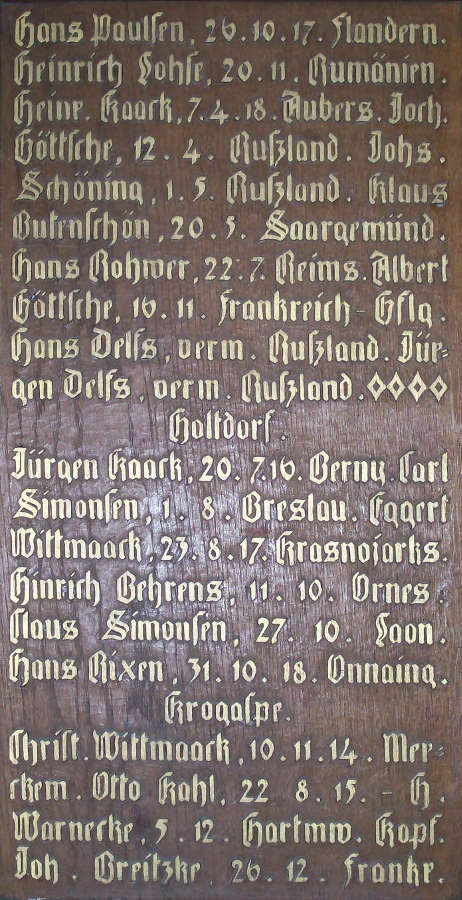 Hans Paulsen, 26.10.17. Flandern.
Heinrich Lohse, 20.11. Rumänien.
Heinr. Kaack, 7.4.18. Aubers. Joch.
Göttsche, 12.4. Rußland. Johs.
Schöning, 1.5. Rußland. Klaus
Butenschön, 20.5. Saargemünd.
Hans Rohwer, 22.7. Reims. Albert
Göttsche, 16.11. Frankreich - Gflg.
Hans Delfs, verm. Rußland. Jür-
gen Delfs, verm. Rußland. ◇◇◇◇
Holtdorf.
Jürgen Kaack, 20.7.16. Berny. Carl
Simonsen, 1.8. Breslau. Eggert
Wittmaack, 23.8.17. Krasnojarks.
Hinrich Behrens, 11.10. Ornes.
Claus Simonsen, 27.10. Laon.
Hans Rixen, 31.10.18. Onnaing.
Krogaspe.
Christ. Wittmaack, 10.11.14. Mer-
ckem. Otto Kahl, 22.8.15. - H.
Warnecke, 5.12. Hartmw. Kopf.
Joh. Breitzke, 26.12. Frankr.